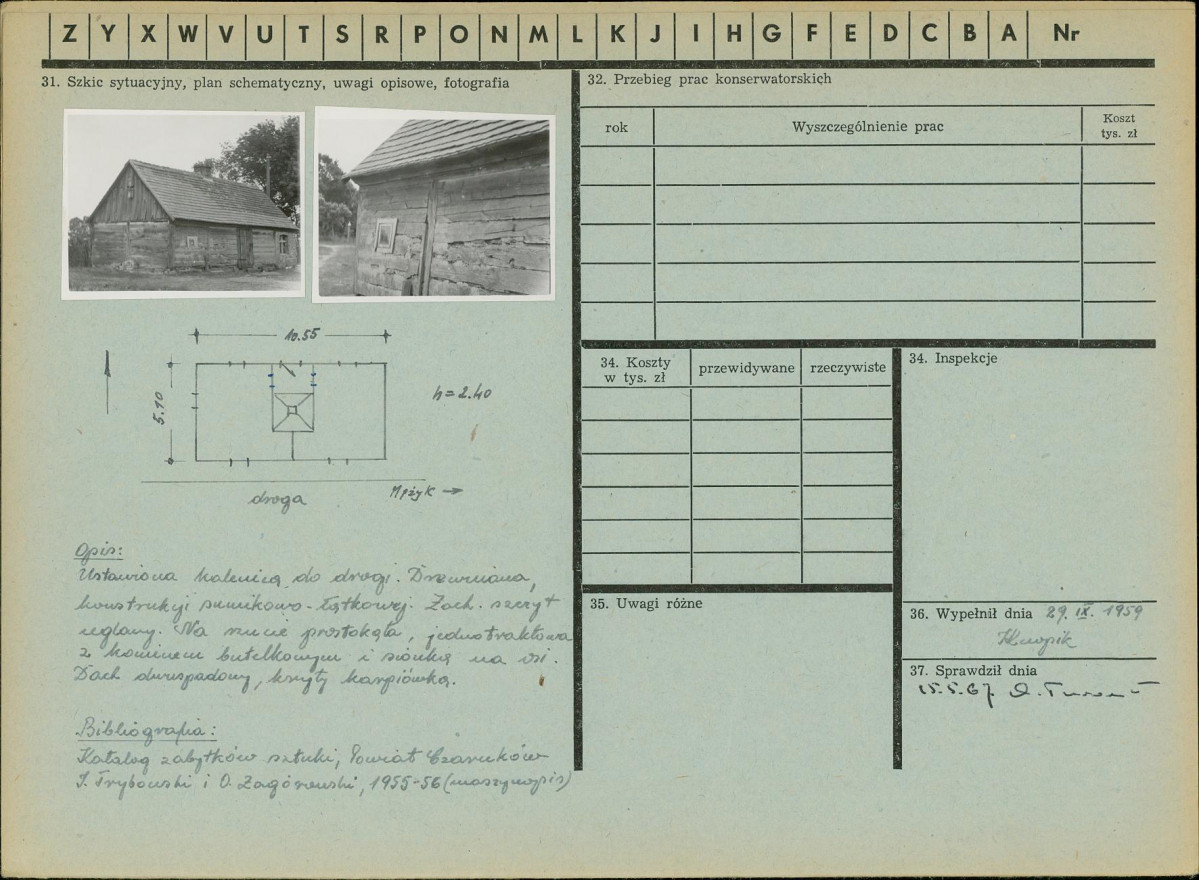 Z Y X W V U T S R P O N M L K J I H G F E D C B A Nr
31. Szkic sytuacyjny, plan schematyczny, uwagi opisowe, fotografia
10.55
5.10
h = 2.40
droga
Mężyk →
Opis:
Ustawiona kalenicą do drogi. Drewniana,
konstrukcji sumikowo-łątkowej. Zach. szczyt
ceglany. Na rzucie prostokąta, jednotraktowa
z kominem butelkowym i sionką na osi.
Dach dwuspadowy, kryty karpiówką.
Bibliografia:
Katalog zabytków sztuki, Powiat Czarnków
i O. Zagórowski, 1955-56 (maszynopis)
32. Przebieg prac konserwatorskich
rok
Wyszczególnienie prac
Koszt
tys. zł
34. Koszty
w tys. zł
przewidywane
rzeczywiste
34. Inspekcje
35. Uwagi różne
36. Wypełnił dnia 29. IX. 1959
37. Sprawdził dnia
15.5.67